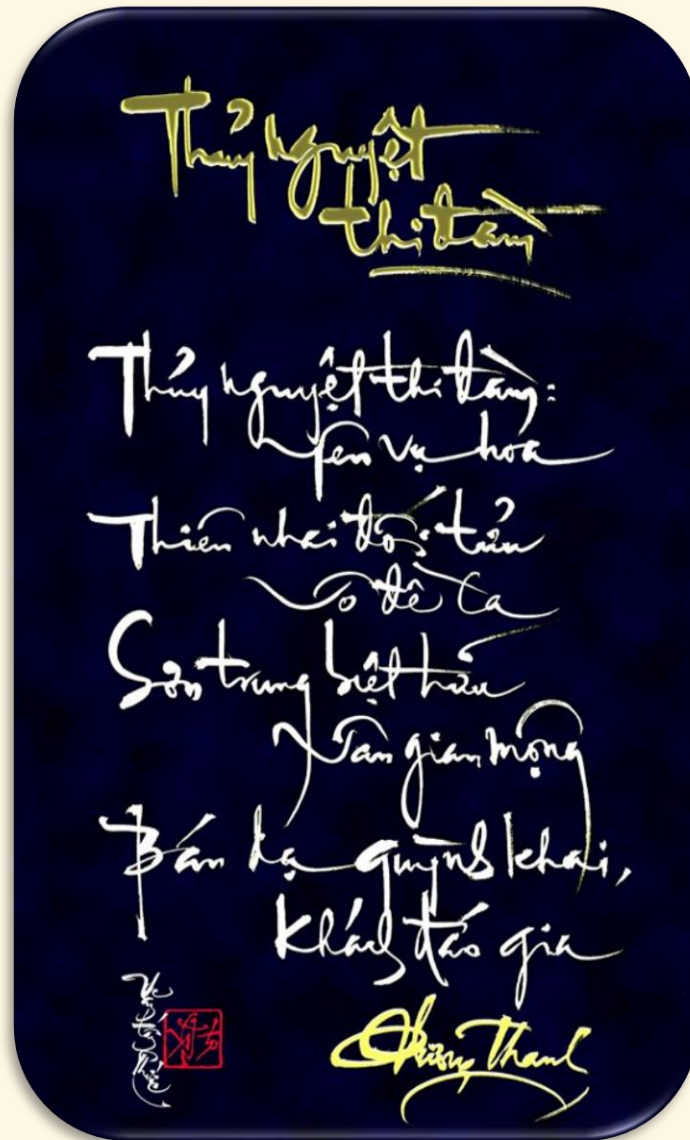 Thủy nguyệt
thi đàm
Thủy nguyệt thi đàm:
yên vụ hoa
Thiên nhai đối tửu
Vô đề ca
Sơn trung biệt hữu
Vân gian mộng
Bán dạ quỳnh khai,
khách đáo gia
Thanh